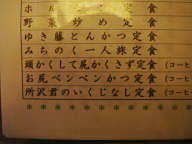 野菜炒め定食
ゆき藤とんかつ定食
みちのく一人旅定食
頭かくして尻かくさず定食 (コーヒ
お尻ペンペンかつ定食 (コーヒ
所沢君のいくじなし定食 (コーヒ